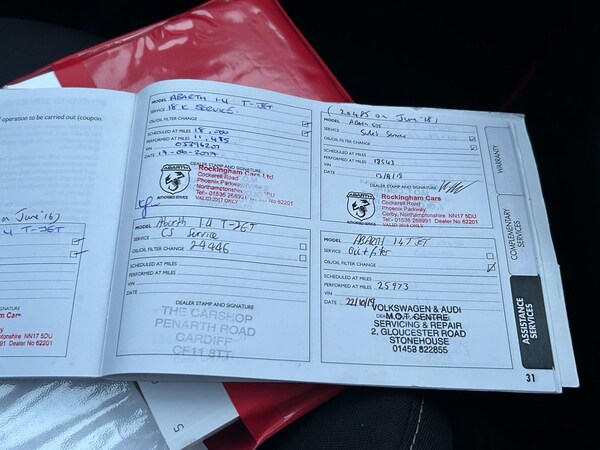 f operation to be carried out (coupon
on June '16)
T-JET
Cars
NN17 5DU
Dealer No 62201
MODEL ABARTH 1.4 T-JET
SERVICE 18K SERVICE
OIL/OIL FILTER CHANGE
SCHEDULED AT MILES 18,000
PERFORMED AT MILES 11,485
VIN 03396207
DATE 19-06-2017
DEALER STAMP AND SIGNATURE
ABARTH
AUTHORISED SERVICE
Rockingham Cars Ltd
Cockerell Road
Phoenix Parkway
Northamptonshire
Tel:- 01536 268991 Dealer No 62201
VALID 2017 ONLY
MODEL Abarth 1.4 T-JET
SERVICE CS Service
OIL/OIL FILTER CHANGE 24446
SCHEDULED AT MILES
PERFORMED AT MILES
VIN
DATE
DEALER STAMP AND SIGNATURE
THE CARSHOP
PENARTH ROAD
CARDIFF
CF11 8TT
(20485 on June '18)
MODEL Abarth 595
SERVICE Sales Service
OIL/OIL FILTER CHANGE
SCHEDULED AT MILES
PERFORMED AT MILES
VIN
DATE
DEALER STAMP AND SIGNATURE
ABARTH
AUTHORISED SERVICE
Rockingham Cars
Cockerell Road
Phoenix Parkway
Corby, Northamptonshire NN17 5DU
Tel:- 01536 268991 Dealer No 62201
VALID 2018 ONLY
MODEL ABARTH 1.4 T JET
SERVICE Oil + filter
OIL/OIL FILTER CHANGE
SCHEDULED AT MILES
PERFORMED AT MILES 25973
VIN
DATE 22/10/19
VOLKSWAGEN & AUDI
M.O.T. CENTRE
SERVICING & REPAIR
2, GLOUCESTER ROAD
STONEHOUSE
01453 822855
WARRANTY
COMPLEMENTARY SERVICES
ASSISTANCE SERVICES
31